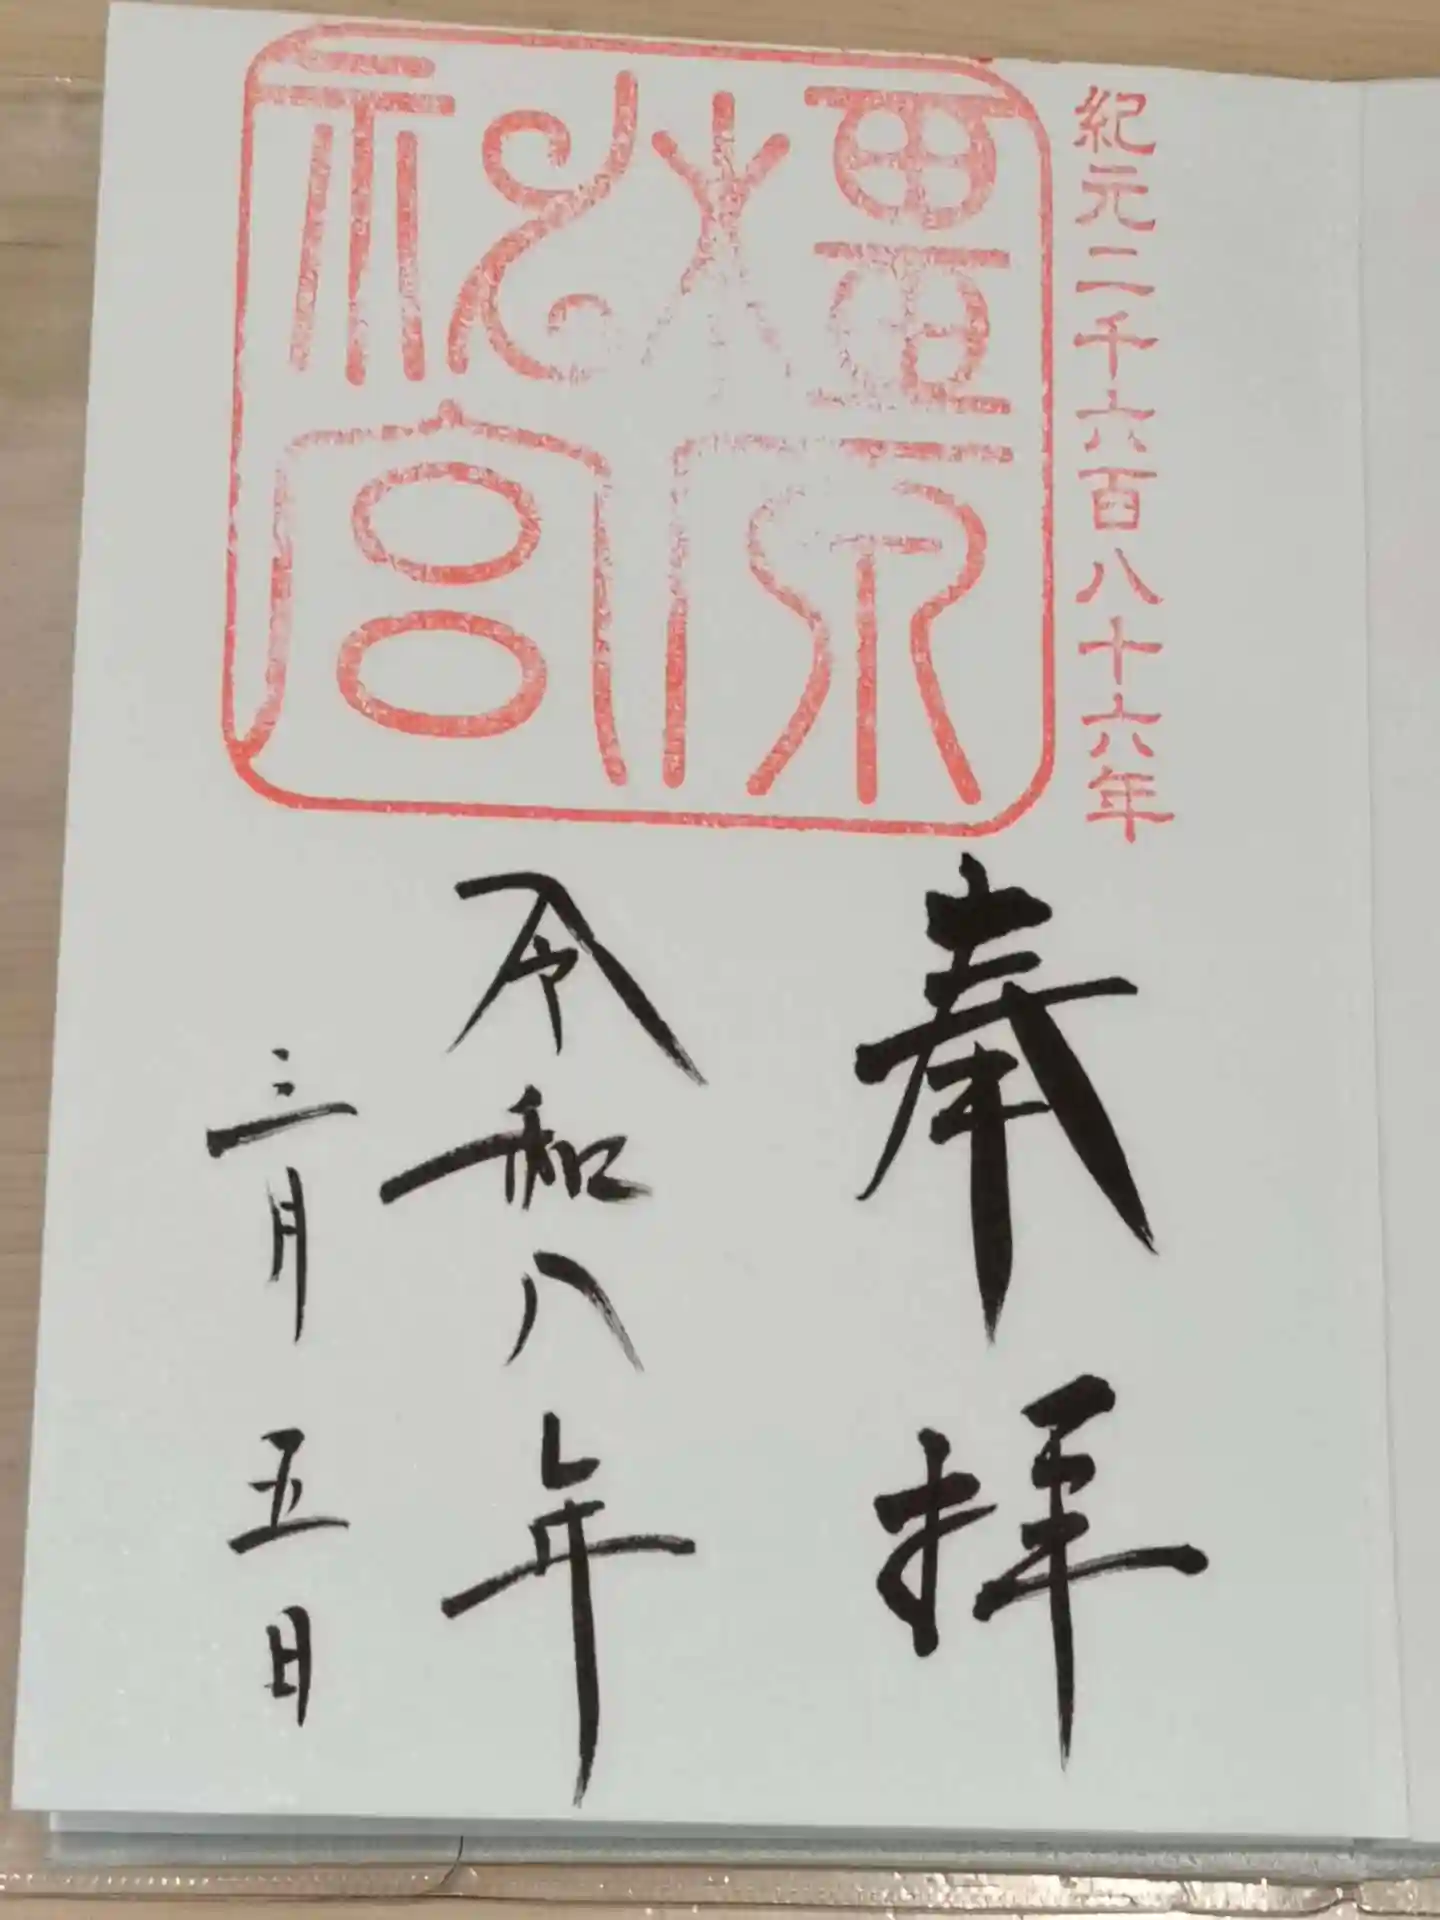 紀元二千六百八十六年
橿原神宮
奉拝
令和八年
三月五日